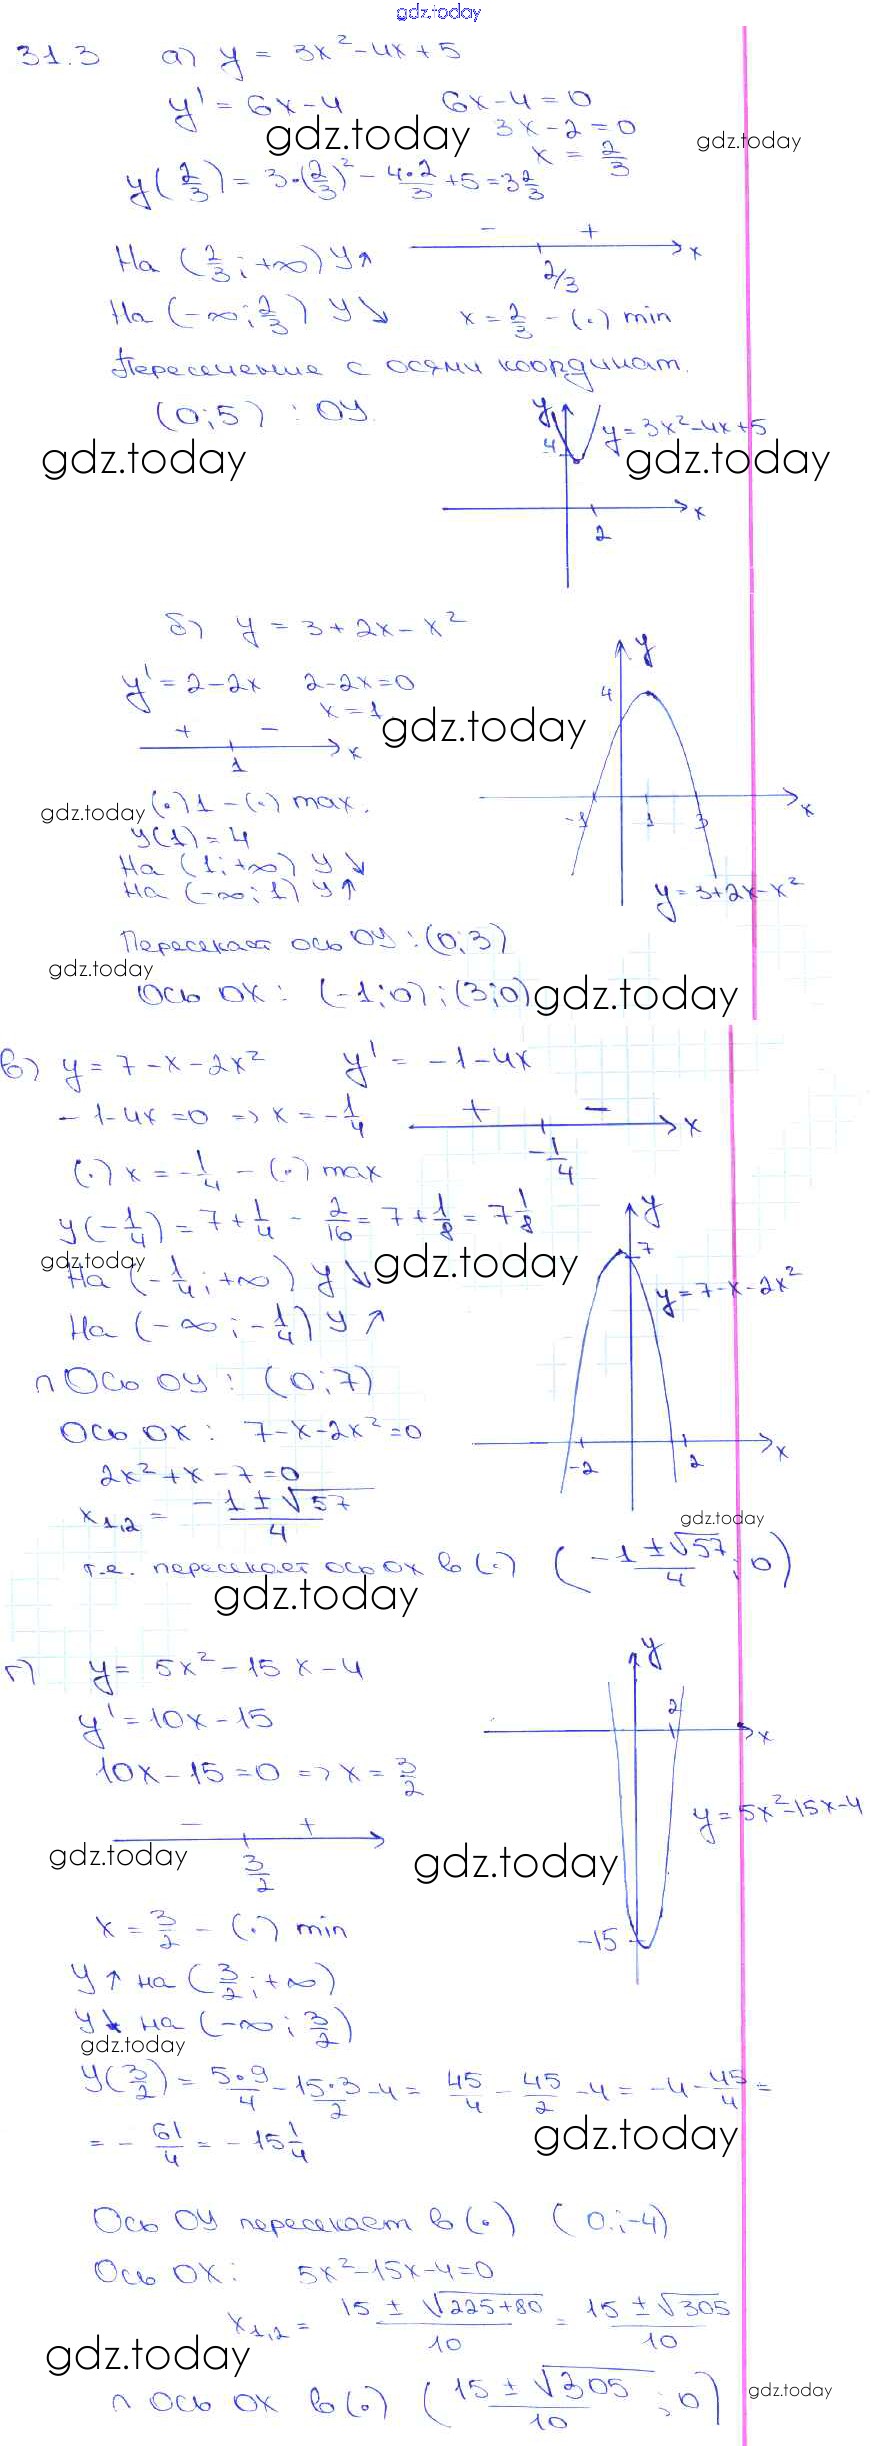 gdz.today
31.3 а) y = 3x² - 4x + 5
y' = 6x - 4 6x - 4 = 0
gdz.today 3x - 2 = 0 gdz.today
x = 2/3
y(2/3) = 3·(2/3)² - 4·2/3 + 5 = 3 2/3
- +
На (2/3; +∞) y↑ 2/3 x
На (-∞; 2/3) y↘ x = 2/3 - (·) min
Пересечение с осями координат.
(0; 5) : OY.
y y = 3x² - 4x + 5
4
gdz.today gdz.today
x
2
б) y = 3 + 2x - x²
y
y' = 2 - 2x 2 - 2x = 0
x = 1
4
gdz.today
+ -
1 x
gdz.today (·) 1 - (·) max.
-1 1 3 x
y(1) = 4
На (1; +∞) y↘
На (-∞; 1) y↑
y = 3 + 2x - x²
Пересекает ось OY: (0; 3)
gdz.today
Ось OX: (-1; 0); (3; 0) gdz.today
в) y = 7 - x - 2x² y' = -1 - 4x
- 1 - 4x = 0 => x = -1/4 + - x
-1/4
(·) x = -1/4 - (·) max
y
y(-1/4) = 7 + 1/4 - 2/16 = 7 + 1/8 = 7 1/8
7
gdz.today gdz.today
На (-1/4; +∞) y↘
y = 7 - x - 2x²
На (-∞; -1/4) y↗
∩ Ось OY: (0; 7)
Ось OX: 7 - x - 2x² = 0
-2 2 x
2x² + x - 7 = 0
x1,2 = -1 ± √57/4
gdz.today
т.е. пересекает ось OX в (·) (-1 ± √57/4; 0)
gdz.today
г) y = 5x² - 15x - 4
y
y' = 10x - 15
2 x
10x - 15 = 0 => x = 3/2
y = 5x² - 15x - 4
- +
3/2
gdz.today gdz.today
x = 3/2 - (·) min
-15
y↑ на (3/2; +∞)
y↘ на (-∞; 3/2)
gdz.today
y(3/2) = 5·9/4 - 15·3/2 - 4 = 45/4 - 45/2 - 4 = -4 - 45/4 =
= - 61/4 = - 15 1/4
gdz.today
Ось OY пересекает в (·) (0; -4)
Ось OX: 5x² - 15x - 4 = 0
x1,2 = 15 ± √225+80/10 = 15 ± √305/10
gdz.today
∩ Ось OX в (·) (15 ± √305/10; 0) gdz.today